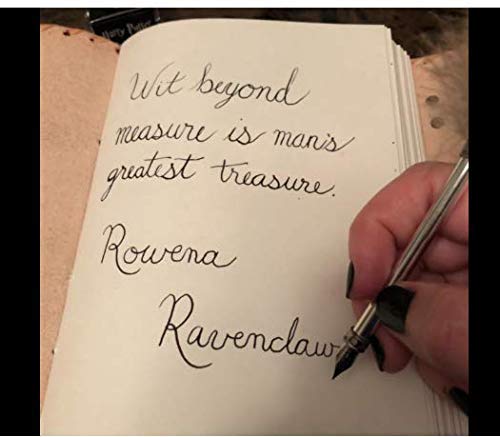 Harry Potter
Wit beyond
measure is man's
greatest treasure.
Rowena
Ravenclaw